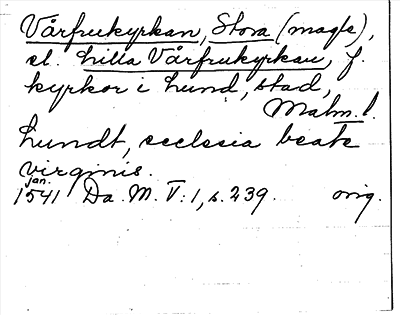 Vårfrukyrkan, Stora (magle),
el. Lilla Vårfrukyrkan, f.
kyrkor i Lund, stad,
Malm. l.
Lundt, ecclesia beate
virginis.
jan.
1541 Da. M. V: 1, s. 239. orig.